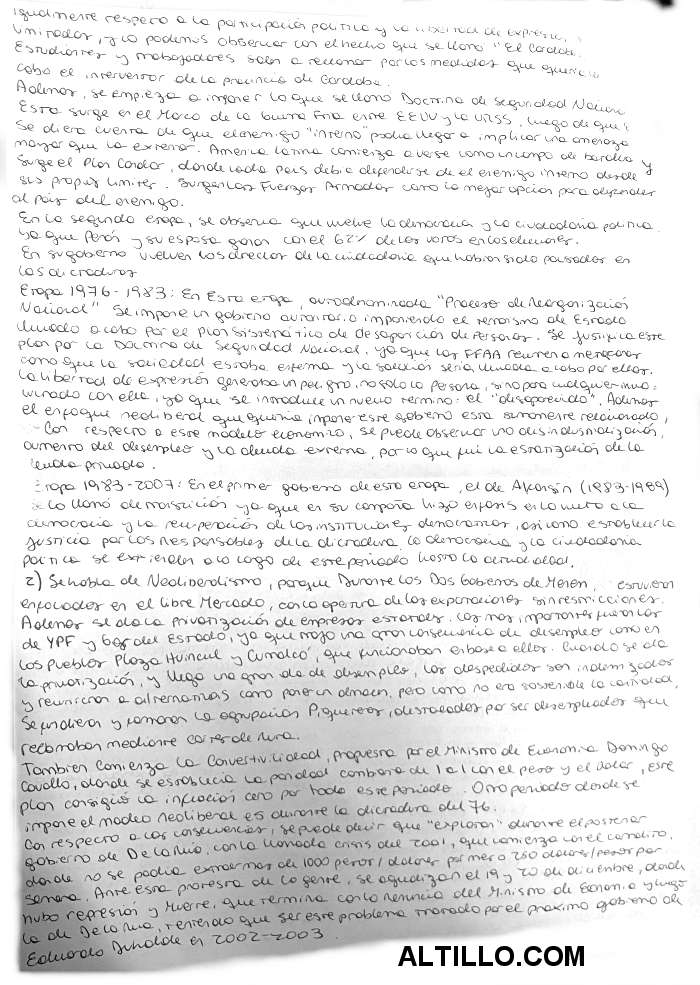 igualmente respecto a la participación política y la libertad de expresión
limitados, y lo podemos observar con el hecho que se llamó "El Cordob
Estudiantes y trabajadores salen a reclamar por las medidas que quería
cabo el interventor de la provincia de Córdoba.
Además, se empieza a imponer lo que se llamó Doctrina de Seguridad Nacion
Esta surge en el Marco de la Guerra Fría entre EEUU y la URSS, luego de que
se diera cuenta de que el enemigo "interno" podía llegar a implicar una amenaza
mayor que la externa. America latina comienza a verse como un campo de batalla y
surge el Plan Condor, donde cada país debía defenderse de el enemigo interno desde
sus propios limites. Surgen las Fuerzas Armadas como la mejor opción para defender
al país del enemigo.
En la segunda etapa, se observa que vuelve la democracia y la ciudadanía política
ya que Perón y su esposa ganan con el 62% de los votos en las elecciones.
En su gobierno vuelven los derechos de la ciudadanía que habían sido pausados en
las dictaduras
Etapa 1976-1983: En Esta etapa, autodenominada "Proceso de Reorganización
Nacional" Se impone un gobierno autoritario imponiendo el terrorismo de Estado
llevado a cabo por el Plan sistemático de desaparición de Personas. Se justifica este
plan por la Doctrina de Seguridad Nacional, ya que las FFAA
como que la sociedad estaba enferma y la solución sería llevada a cabo por ellos.
La libertad de expresión generaba un peligro, no solo la persona, sino para cualquier
vinculado con ella, ya que se introduce un nuevo termino: el "desaparecido". Además
el enfoque neoliberal que quería imponer este gobierno esta sumamente relacionado,
- Con respecto a este modelo economico, se puede observar una desindustrialización,
aumento del desempleo y la deuda externa, por lo que fue la estatización de la
deuda privada.
Etapa 1983-2007: En el primer gobierno de esta etapa, el de Alfonsín (1983-1989)
se lo llamó de transición ya que en su campaña hizo enfasis en la vuelta a la
democracia y la recuperación de las instituciones democraticas, así como establecer la
justicia por los Responsables de la dictadura. La democracia y la ciudadanía
política se extienden a lo largo de este periodo hasta la actualidad.
2) Se habla de Neoliberalismo, porque Durante los Dos Gobiernos de Menem, estuvieron
enfocados en el libre Mercado, con la apertura de las exportaciones sin restricciones.
Además se da la Privatización de empresas estatales. Las mas importantes fueron las
de YPF y Gas del Estado, ya que trajo una gran consecuencia de desempleo como en
los pueblos Plaza Huincul y Cutralcó, que funcionaban en base a ellos. Cuando se da
la privatización, y llega una gran ola de desempleo, los despedidos son indemnizados
y recurrieron a alternativas como poner un almacen, pero como no era sostenible la cantidad,
se fundieron y formaron la agrupación Piqueteros, destacados por ser desempleados que
reclamaban mediante cortes de ruta.
Tambien comienza la Convertivilidad, propuesta por el Ministro de Economia Domingo
Cavallo, donde se establecía la paridad cambiaria de 1 a 1 con el peso y el dolar, este
plan consiguió la inflación cero por todo este periodo. Otro periodo donde se
impone el modelo neoliberal es durante la dictadura del 76.
Con respecto a las consecuencias, se puede decir que "explotan" durante el posterior
gobierno de De la Rúa, con la llamada crisis del 2001, que comienza con el corralito,
donde no se podía extraer mas de 1000 pesos/dolares por mes o 250 dolares/pesos por
semana. Ante esta protesta de la gente, se agudizan el 19 y 20 de diciembre, donde
hubo represión y Muerte, que termina con la renuncia del Ministro de Economia y luego
la de De la Rua, teniendo que ser este problema tratado por el proximo gobierno de
Eduardo Duhalde en 2002-2003.
ALTILLO.COM